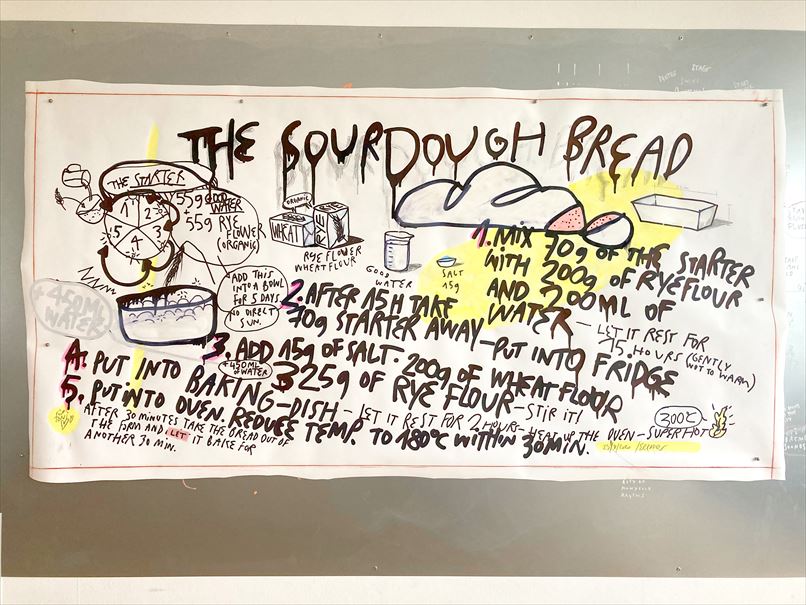 THE SOURDOUGH BREAD
THE STARTER
1 2 3 4 5
55g GOOD
WATER
+
55g RYE
FLOWER
(ORGANIC)
ORGANIC
WHEAT
RYE
RYE FLOWER
WHEAT FLOUR
GOOD
WATER
SALT
15g
+ADD THIS
INTO A BOWL
FOR 5 DAYS
NO DIRECT
SUN.
+450ML
WATER
1. MIX 70g OF THE STARTER
WITH 200g OF RYEFLOUR
AND 200ML OF
WATER – LET IT REST FOR
15 HOURS (GENTLY
NOT TO WARM)
2. AFTER 15H TAKE
70g STARTER AWAY – PUT INTO FRIDGE
3. ADD 15g OF SALT. 200g OF WHEAT FLOUR
+450ML
OF WATER
325g OF RYE FLOUR – STIR IT!
4. PUT INTO BAKING-DISH – LET IT REST FOR 2 HOURS – HEAT UP THE OVEN – SUPERHOT
300°C
5. PUT INTO OVEN. REDUCE TEMP. TO 180°C WITHIN 30MIN.
AFTER 30 MINUTES TAKE THE BREAD OUT OF
THE FORM AND LET IT BAKE FOR
ANOTHER 30 MIN.